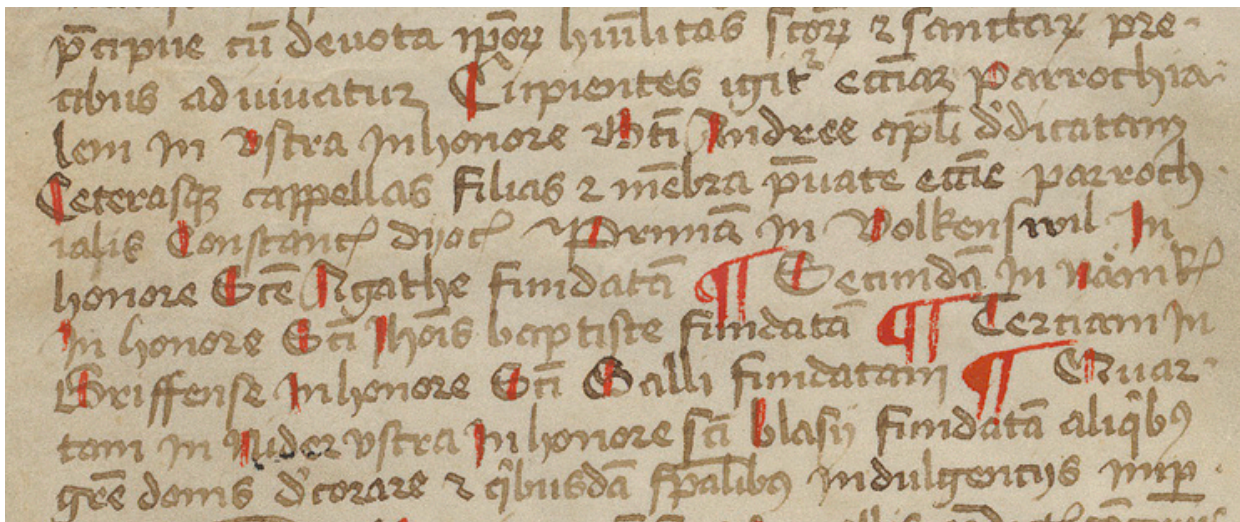 p̄cipue cū deuota ip̄oꝝ hūīlitas sc̄oꝝ ⁊ sanctaꝝ pre-
cibus adiuuatur Cupientes igit᷑ ecc̄iaꝫ parrochia-
lem in vstra In honore Bt̄i Andree apl̄i d'dicatam
Ceterasqꝫ cappellas filias ⁊ mēbra p̄uate ecc̄ie parroch-
ialis Constanc̄ dyoc̄ Primā in Volkenswil In
honore Sc̄e Agathe fundatā ¶ Secundā in Nänik̄
In honore Sc̄i Joh̄is baptiste fundatā ¶ Terciam in
Griffense In honore Sc̄i Galli fundatam ¶ Quar-
tam in Nider vstra In honore sc̄i blasij fundatā aliq̄bꝰ
gr̄e donis d'corare ⁊ q̄busdā sp̄alibꝰ indulgencijs imꝑ-